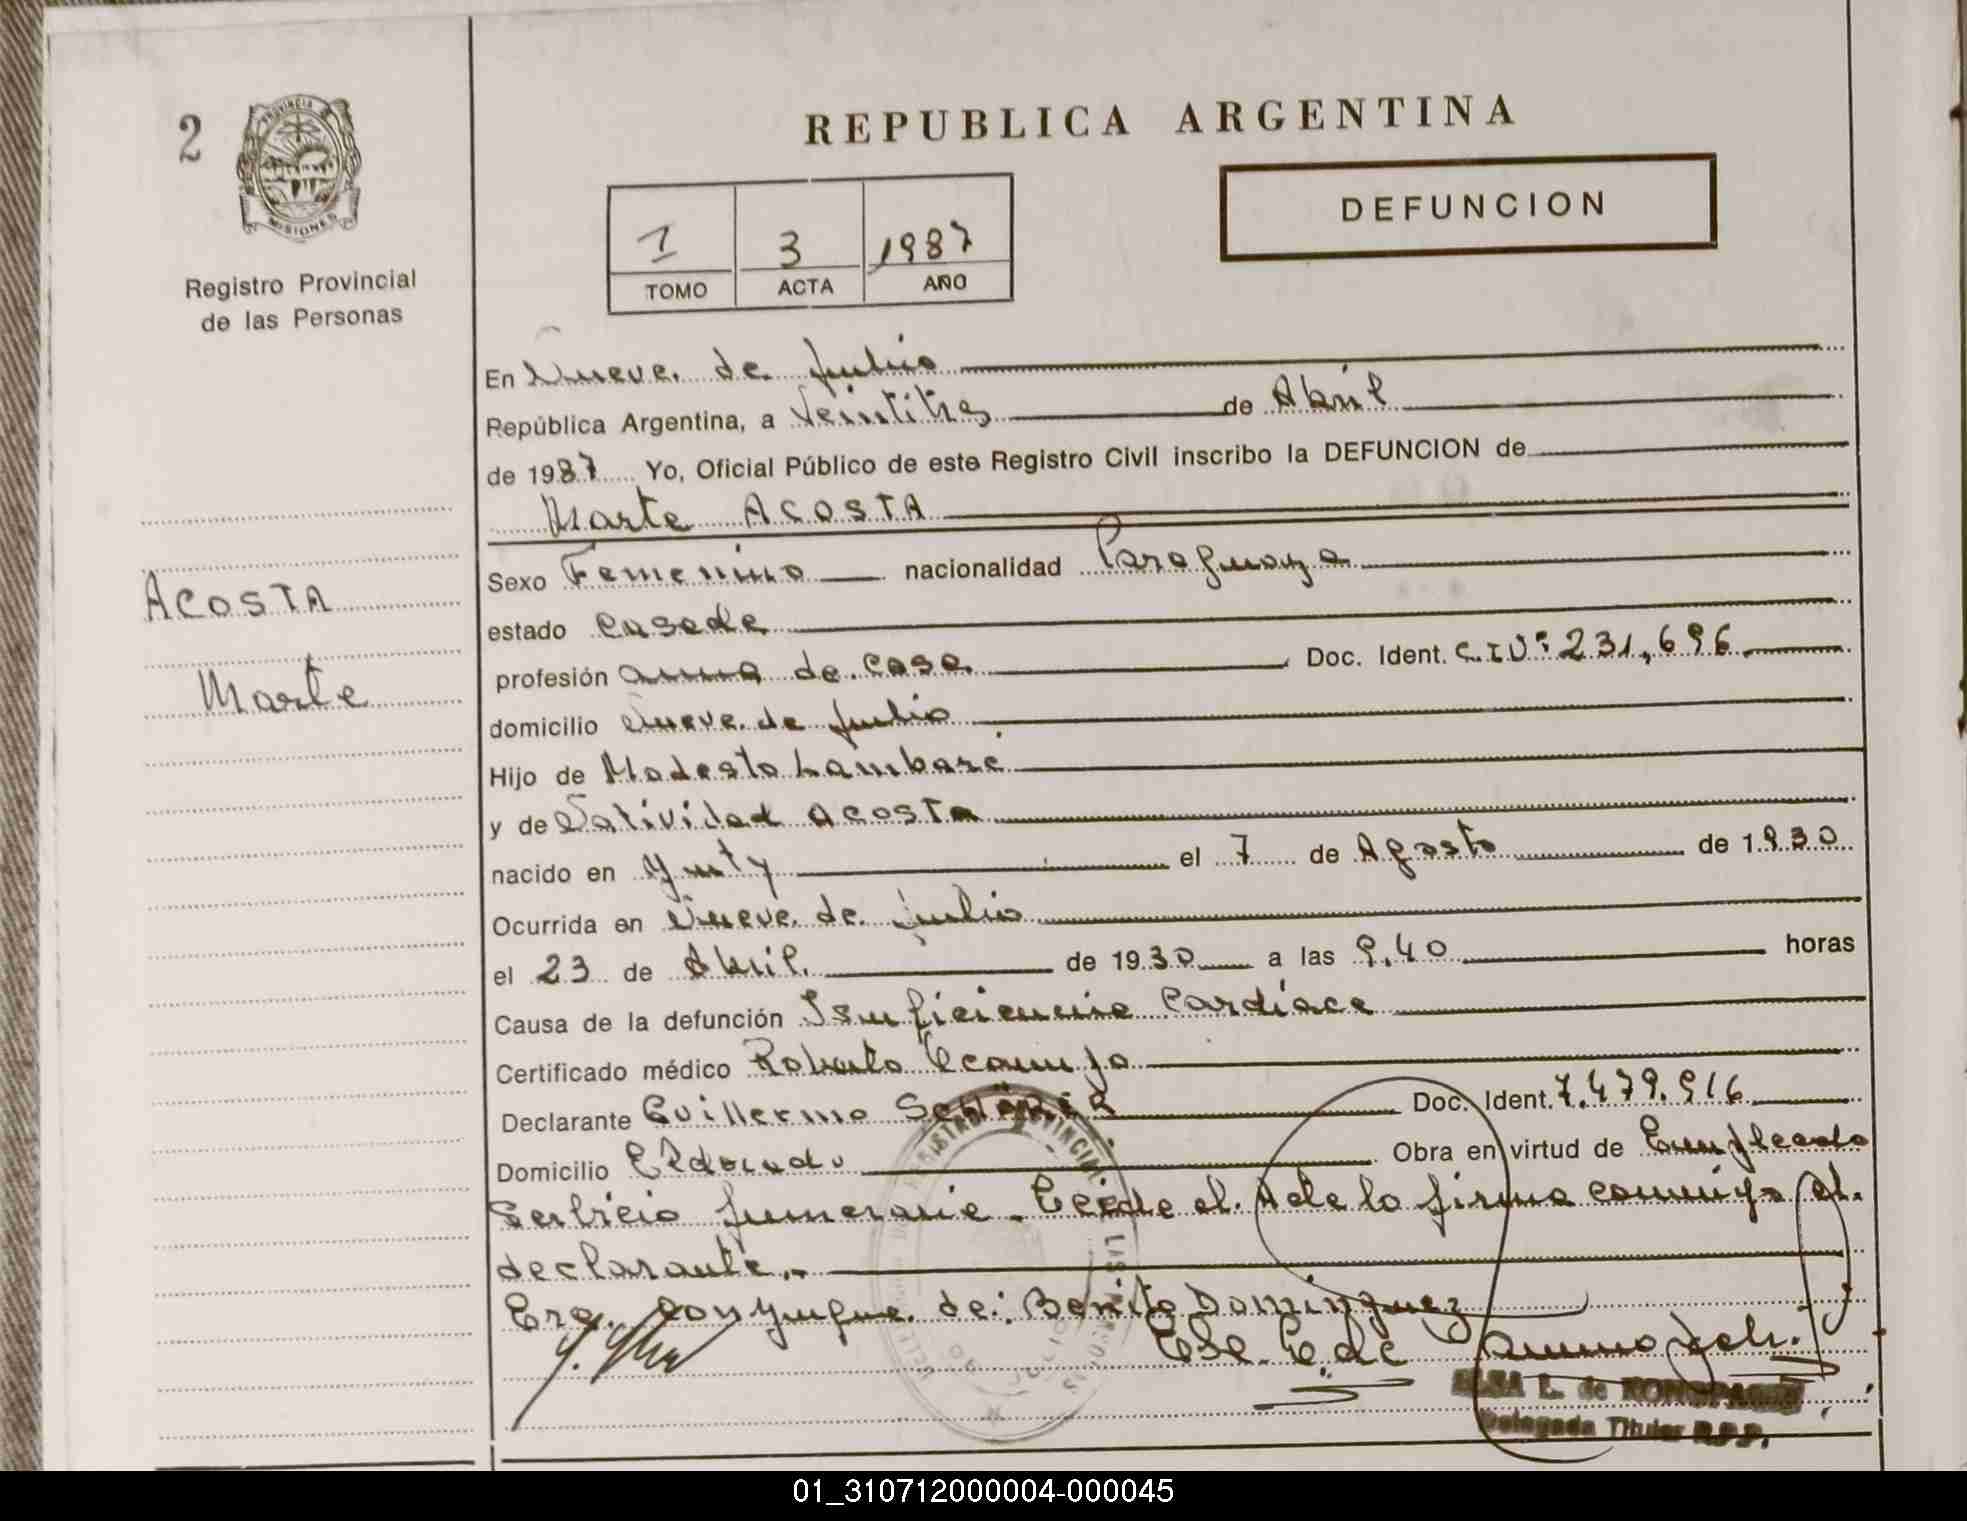 2
PROVINCIA
MISIONES
Registro Provincial
de las Personas
ACOSTA
Marta
REPUBLICA ARGENTINA
DEFUNCION
1 3 1987
TOMO ACTA AÑO
En Nueve de Julio
República Argentina, a Veintitrs de Abril
de 1987 Yo, Oficial Público de este Registro Civil inscribo la DEFUNCION de
Marta ACOSTA
Sexo Femenino nacionalidad Paraguaya
estado Casada
profesión ama de casa Doc. Ident. C.I Nº 231,696
domicilio Nueve de Julio
Hijo de Modesto Lambaré
y de Natividad Acosta
nacido en Yuty el 7 de Agosto de 1930
Ocurrida en Nueve de Julio
el 23 de Abril de 1930 a las 9,40 horas
Causa de la defunción Insuficiencia Cardíaca
Certificado médico Roberto
Declarante Guillermo Doc. Ident. 7.479.916
Domicilio Eldorado Obra en virtud de Empleado
Servicio funeraria. Leída el Acta la firma conmigo el
declarante.-
Era conyugue de: Benito Dominguez
ELSA L. de
Delegada Titular R.P.P.
01_310712000004-000045